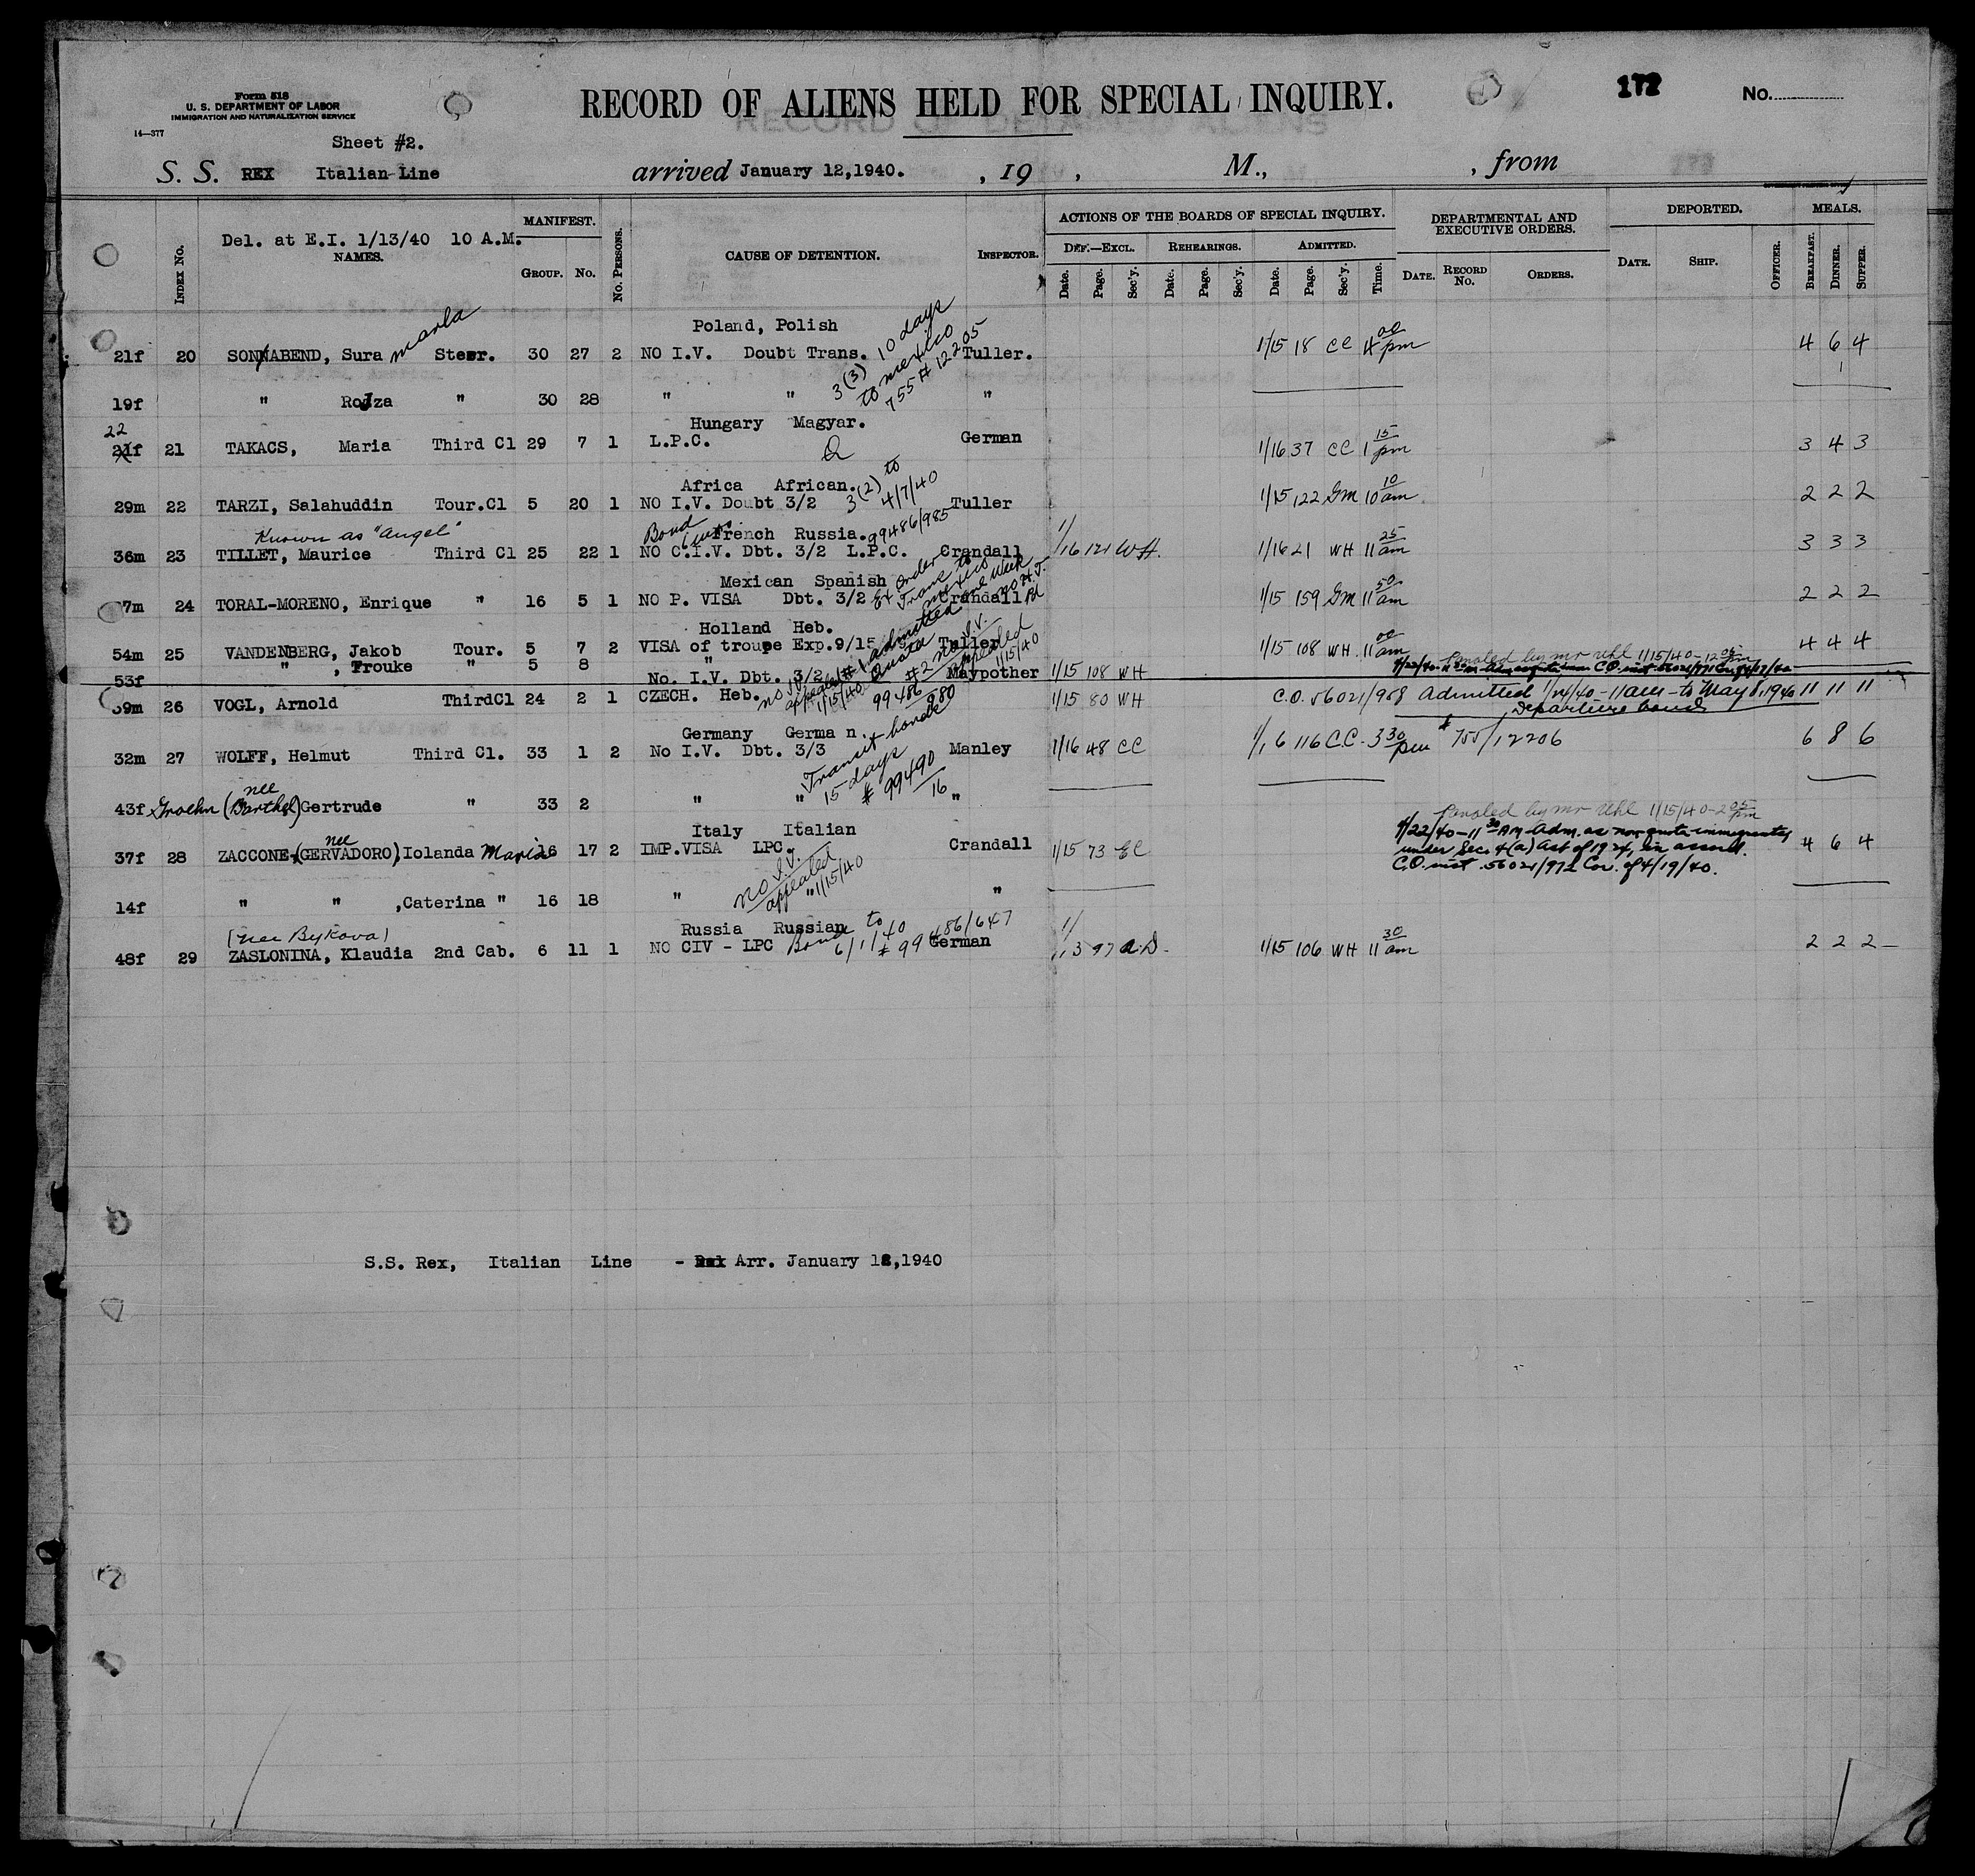 Form 518
U. S. DEPARTMENT OF LABOR
IMMIGRATION AND NATURALIZATION SERVICE
14—377
RECORD OF ALIENS HELD FOR SPECIAL INQUIRY.
172
No.
Sheet #2.
S. S. REX Italian Line arrived January 12,1940. , 19 , M., , from
INDEX NO. Del. at E.I. 1/13/40 10 A.M. NAMES. MANIFEST. GROUP. NO. NO. PERSONS. CAUSE OF DETENTION. INSPECTOR.
ACTIONS OF THE BOARDS OF SPECIAL INQUIRY. DEPARTMENTAL AND EXECUTIVE ORDERS. DEPORTED. MEALS.
DEF.—EXCL. REHEARINGS. ADMITTED.
Date. Page. Sec'y. Date. Page. Sec'y. Date. Page. Sec'y. Time. DATE. RECORD No. ORDERS. DATE. SHIP. OFFICER. BREAKFAST. DINNER. SUPPER.
Poland, Polish
21f 20 SONNABEND, Sura Marla Steer. 30 27 2 NO I.V. Doubt Trans. Tuller. 1/15 18 CC 4 00 pm 4 6 4
3(3) 10 days
to mexico
755 # 12205
19f " Rojza " 30 28 " " "
Hungary Magyar.
22
21f 21 TAKACS, Maria Third Cl 29 7 1 L.P.C. German 1/16 37 CC 1 15 pm 3 4 3
Africa African.
29m 22 TARZI, Salahuddin Tour.Cl 5 20 1 NO I.V. Doubt 3/2 3(2) to 4/7/40 Tuller 1/15 122 GM 10 10 am 2 2 2
Known as "Angel" Bond French Russia. 99486/985
36m 23 TILLET, Maurice Third Cl 25 22 1 NO C.I.V. Dbt. 3/2 L.P.C. Crandall 1/16 121 WH. 1/16 21 WH 11 25 am 3 3 3
Mexican Spanish
37m 24 TORAL-MORENO, Enrique " 16 5 1 NO P. VISA Dbt. 3/2 Crandall 1/15 159 GM 11 50 am 2 2 2
Ex Order
Trans to
mexico
one week
no H.T.
Holland Heb.
54m 25 VANDENBERG, Jakob Tour. 5 7 2 VISA of troupe Exp.9/15 Tuller 1/15 108 WH 11 00 am 4 4 4
#1 admitted
Quota
#2 no I.V.
appealed
1/15/40
53f " , Frouke " 5 8 " No. I.V. Dbt. 3/2 Maypother 1/15 108 WH
by Mr Uhl 1/15/40
39m 26 VOGL, Arnold ThirdCl 24 2 1 CZECH. Heb. 1/15 80 WH C.O. 56021/908 Admitted 1/24/40 - 11 am - to May 8, 1940 11 11 11
Departure bond
no I.V.
appealed
1/15/40
99486/980
Germany German.
32m 27 WOLFF, Helmut Third Cl. 33 1 2 No I.V. Dbt. 3/3 Manley 1/16 48 CC 1/16 116 C.C. 3 30 pm # 755/12206 6 8 6
Transit bond
15 days
# 99490/16
nee
43f Groehn (Barthel) Gertrude " 33 2 " " "
by mr Uhl 1/15/40 - 2 05 pm
Italy Italian
nee
37f 28 ZACCONE (GERVADORO), Iolanda Maria 16 17 2 IMP.VISA LPC. Crandall 1/15 73 EC 4 6 4
1/22/40 - 11 30 AM Adm. as non quota immigrants
under Sec. 4(a) Act of 1924,
C.O. inst. 56021/972 Cor. of 4/19/40.
no I.V.
appealed
1/15/40
14f " " ,Caterina " 16 18 " " "
(nee Bykova) Russia Russian
48f 29 ZASLONINA, Klaudia 2nd Cab. 6 11 1 NO CIV - LPC Bond to 6/1/40 # 99486/647 German 1/13 97 A.D. 1/15 106 WH 11 30 am 2 2 2
S.S. Rex, Italian Line - Arr. January 12,1940